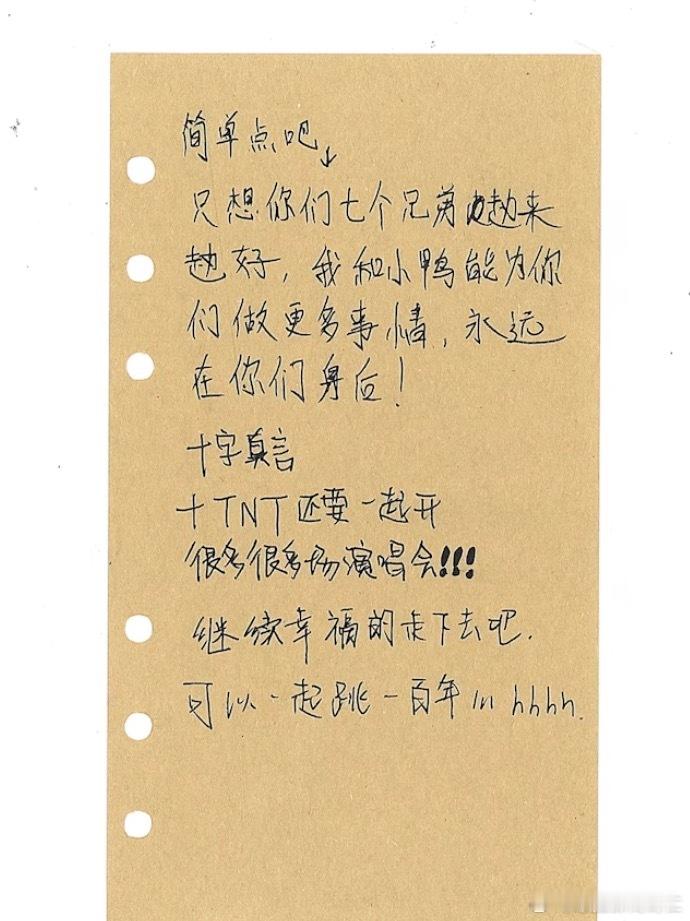 简单点吧↓
只想你们七个兄弟越来
越好，我和小鸭能为你
们做更多事情，永远
在你们身后！
十字真言
十TNT还要一起开
很多很多场演唱会!!!
继续幸福的走下去吧.
可以一起跳一百年 hhhh.